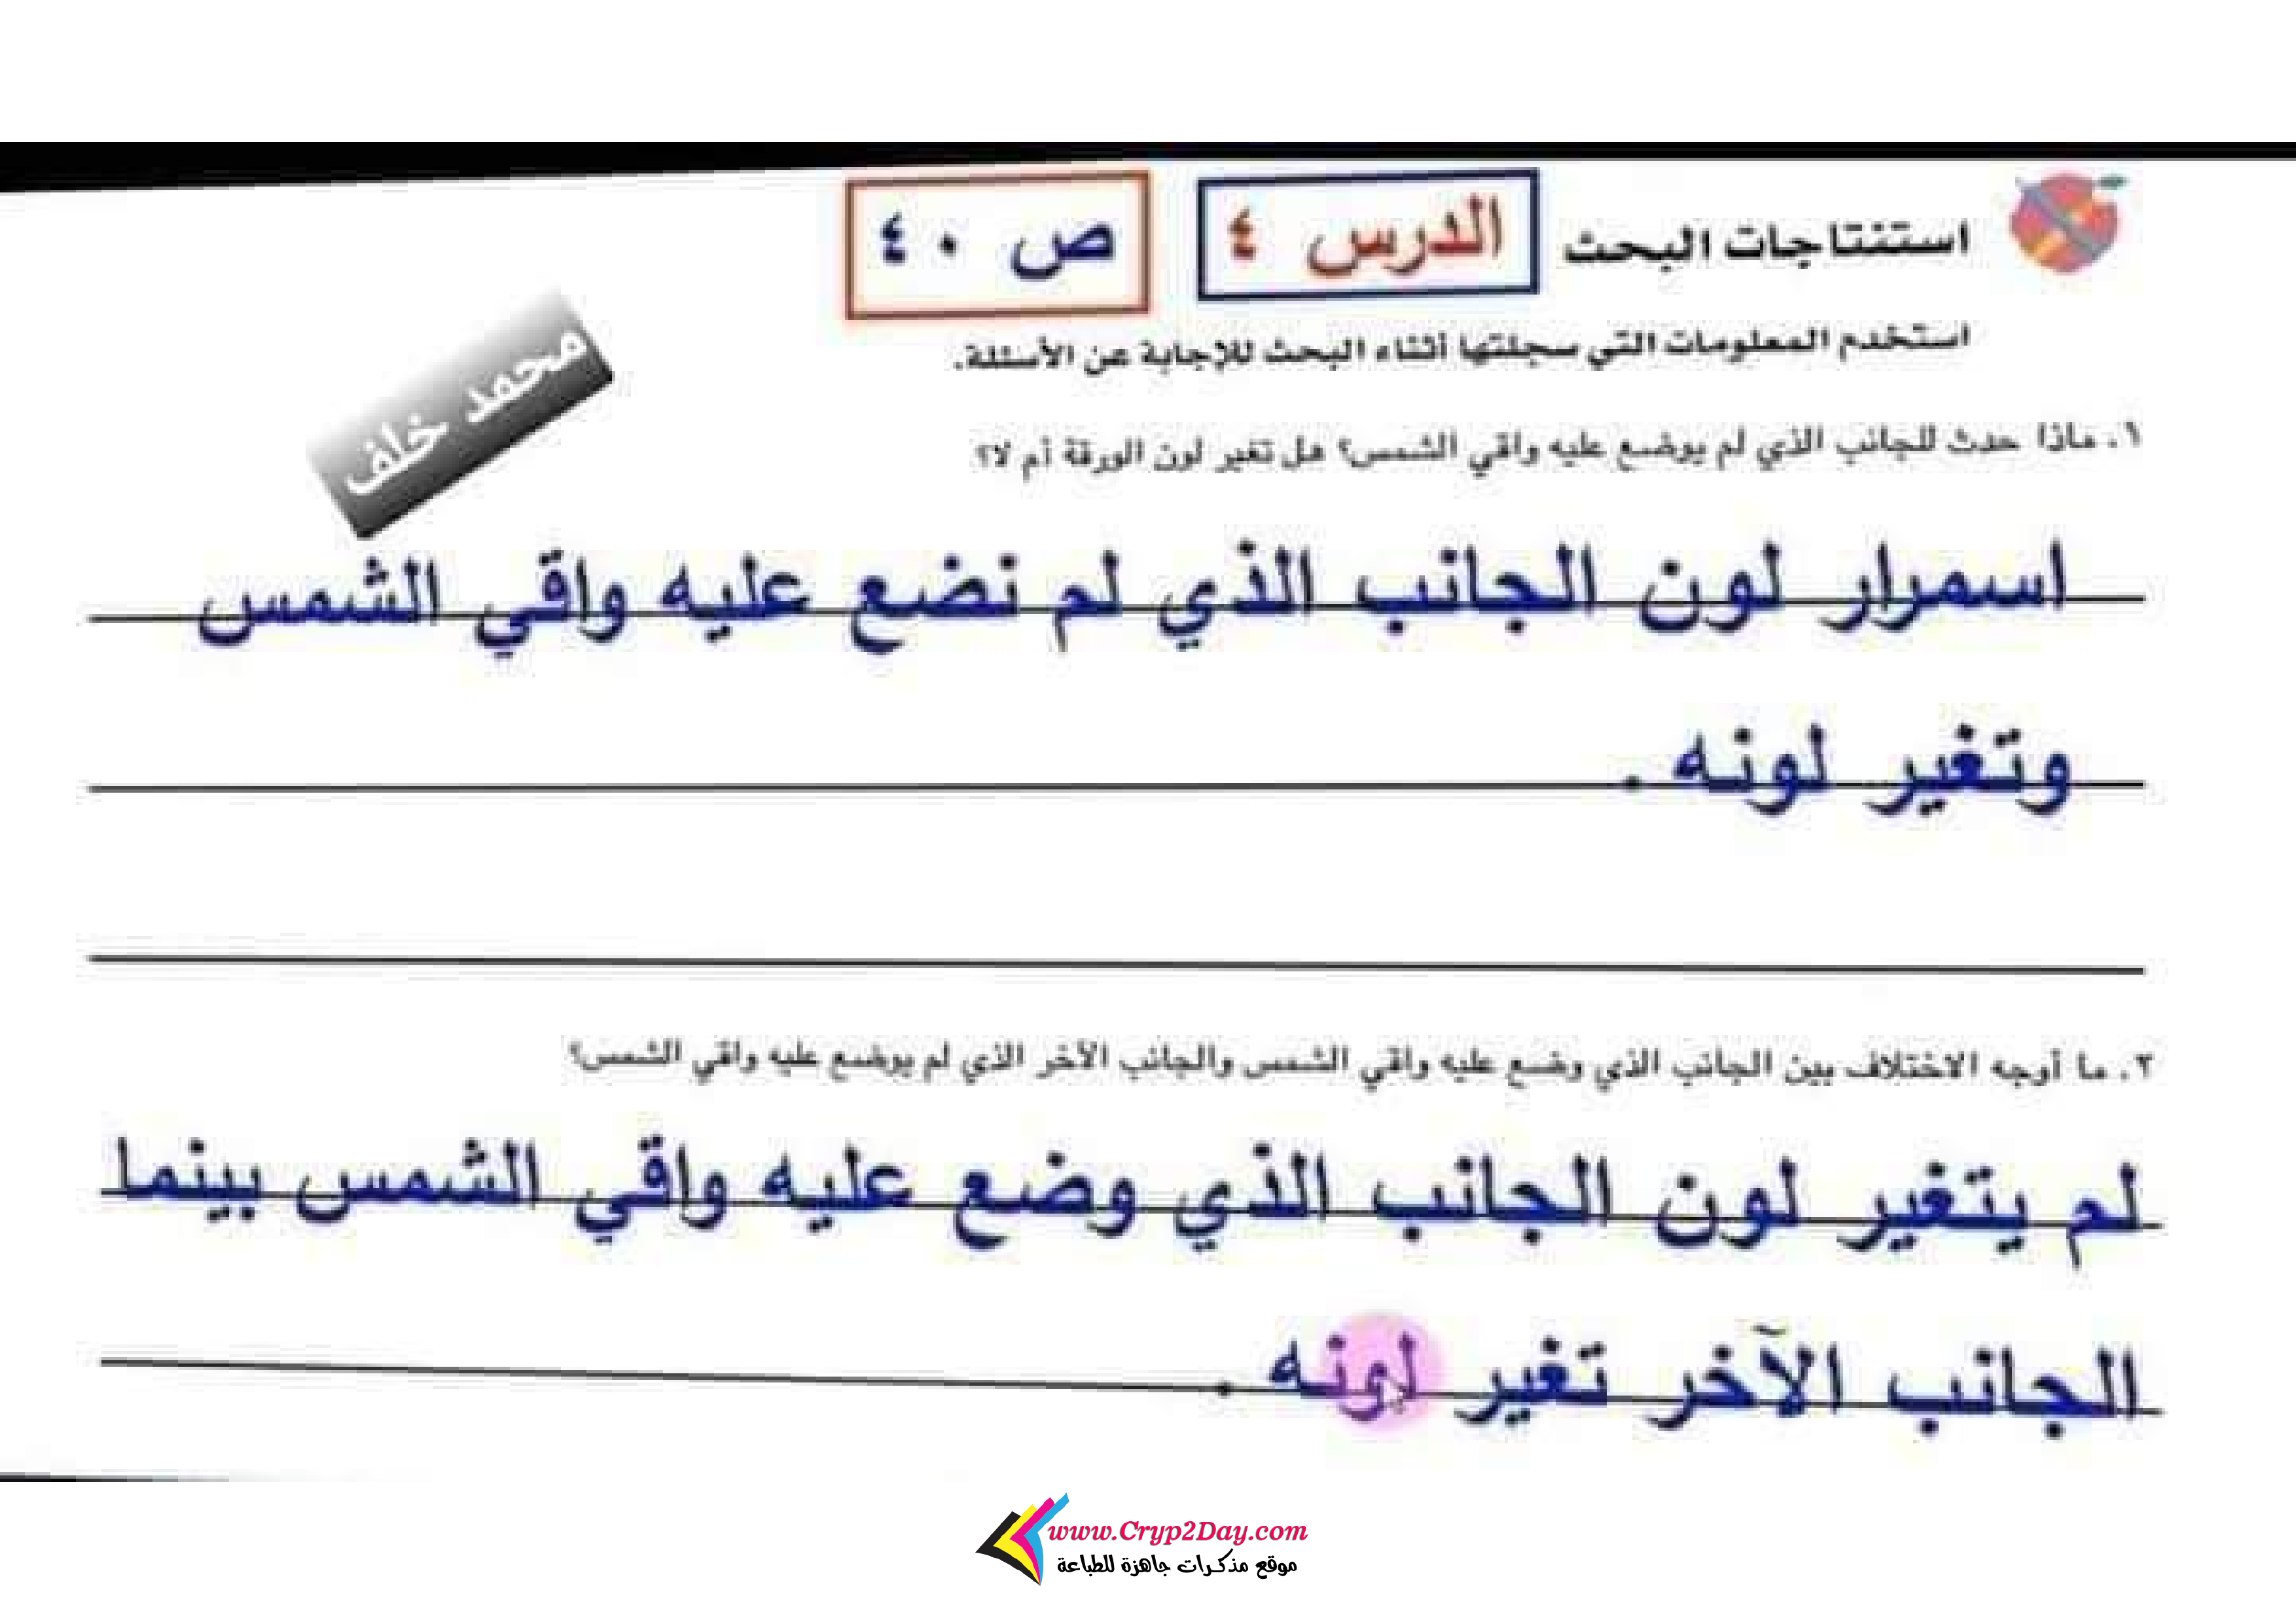 استنتاجات البحث الدرس ٤ ص ٤٠
استخدم المعلومات التي سجلتها أثناء البحث للإجابة عن الأسئلة.
محمد خلف
١. ماذا حدث للجانب الذي لم يوضع عليه واقي الشمس؟ هل تغير لون الورقة أم لا؟
اسمرار لون الجانب الذي لم نضع عليه واقي الشمس
وتغير لونه .
٢. ما أوجه الاختلاف بين الجانب الذي وضع عليه واقي الشمس والجانب الآخر الذي لم يوضع عليه واقي الشمس؟
لم يتغير لون الجانب الذي وضع عليه واقي الشمس بينما
الجانب الآخر تغير لونه .
www.Cryp2Day.com
موقع مذكرات جاهزة للطباعة